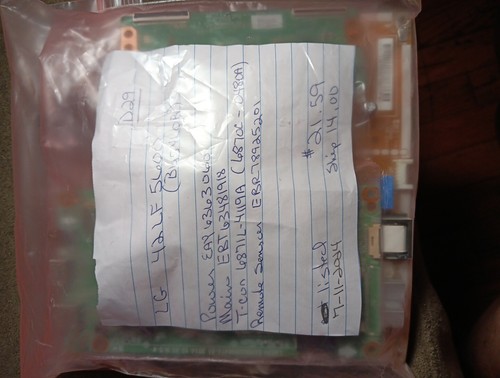 D29
LG 42LF5600
Power EAY63630
Main EBT63481918
T-Con 6871L-419A (6870C-0480A)
Remote Sensor EBR78925201
$21.59
Ship 14.00
listed
7-11-2024